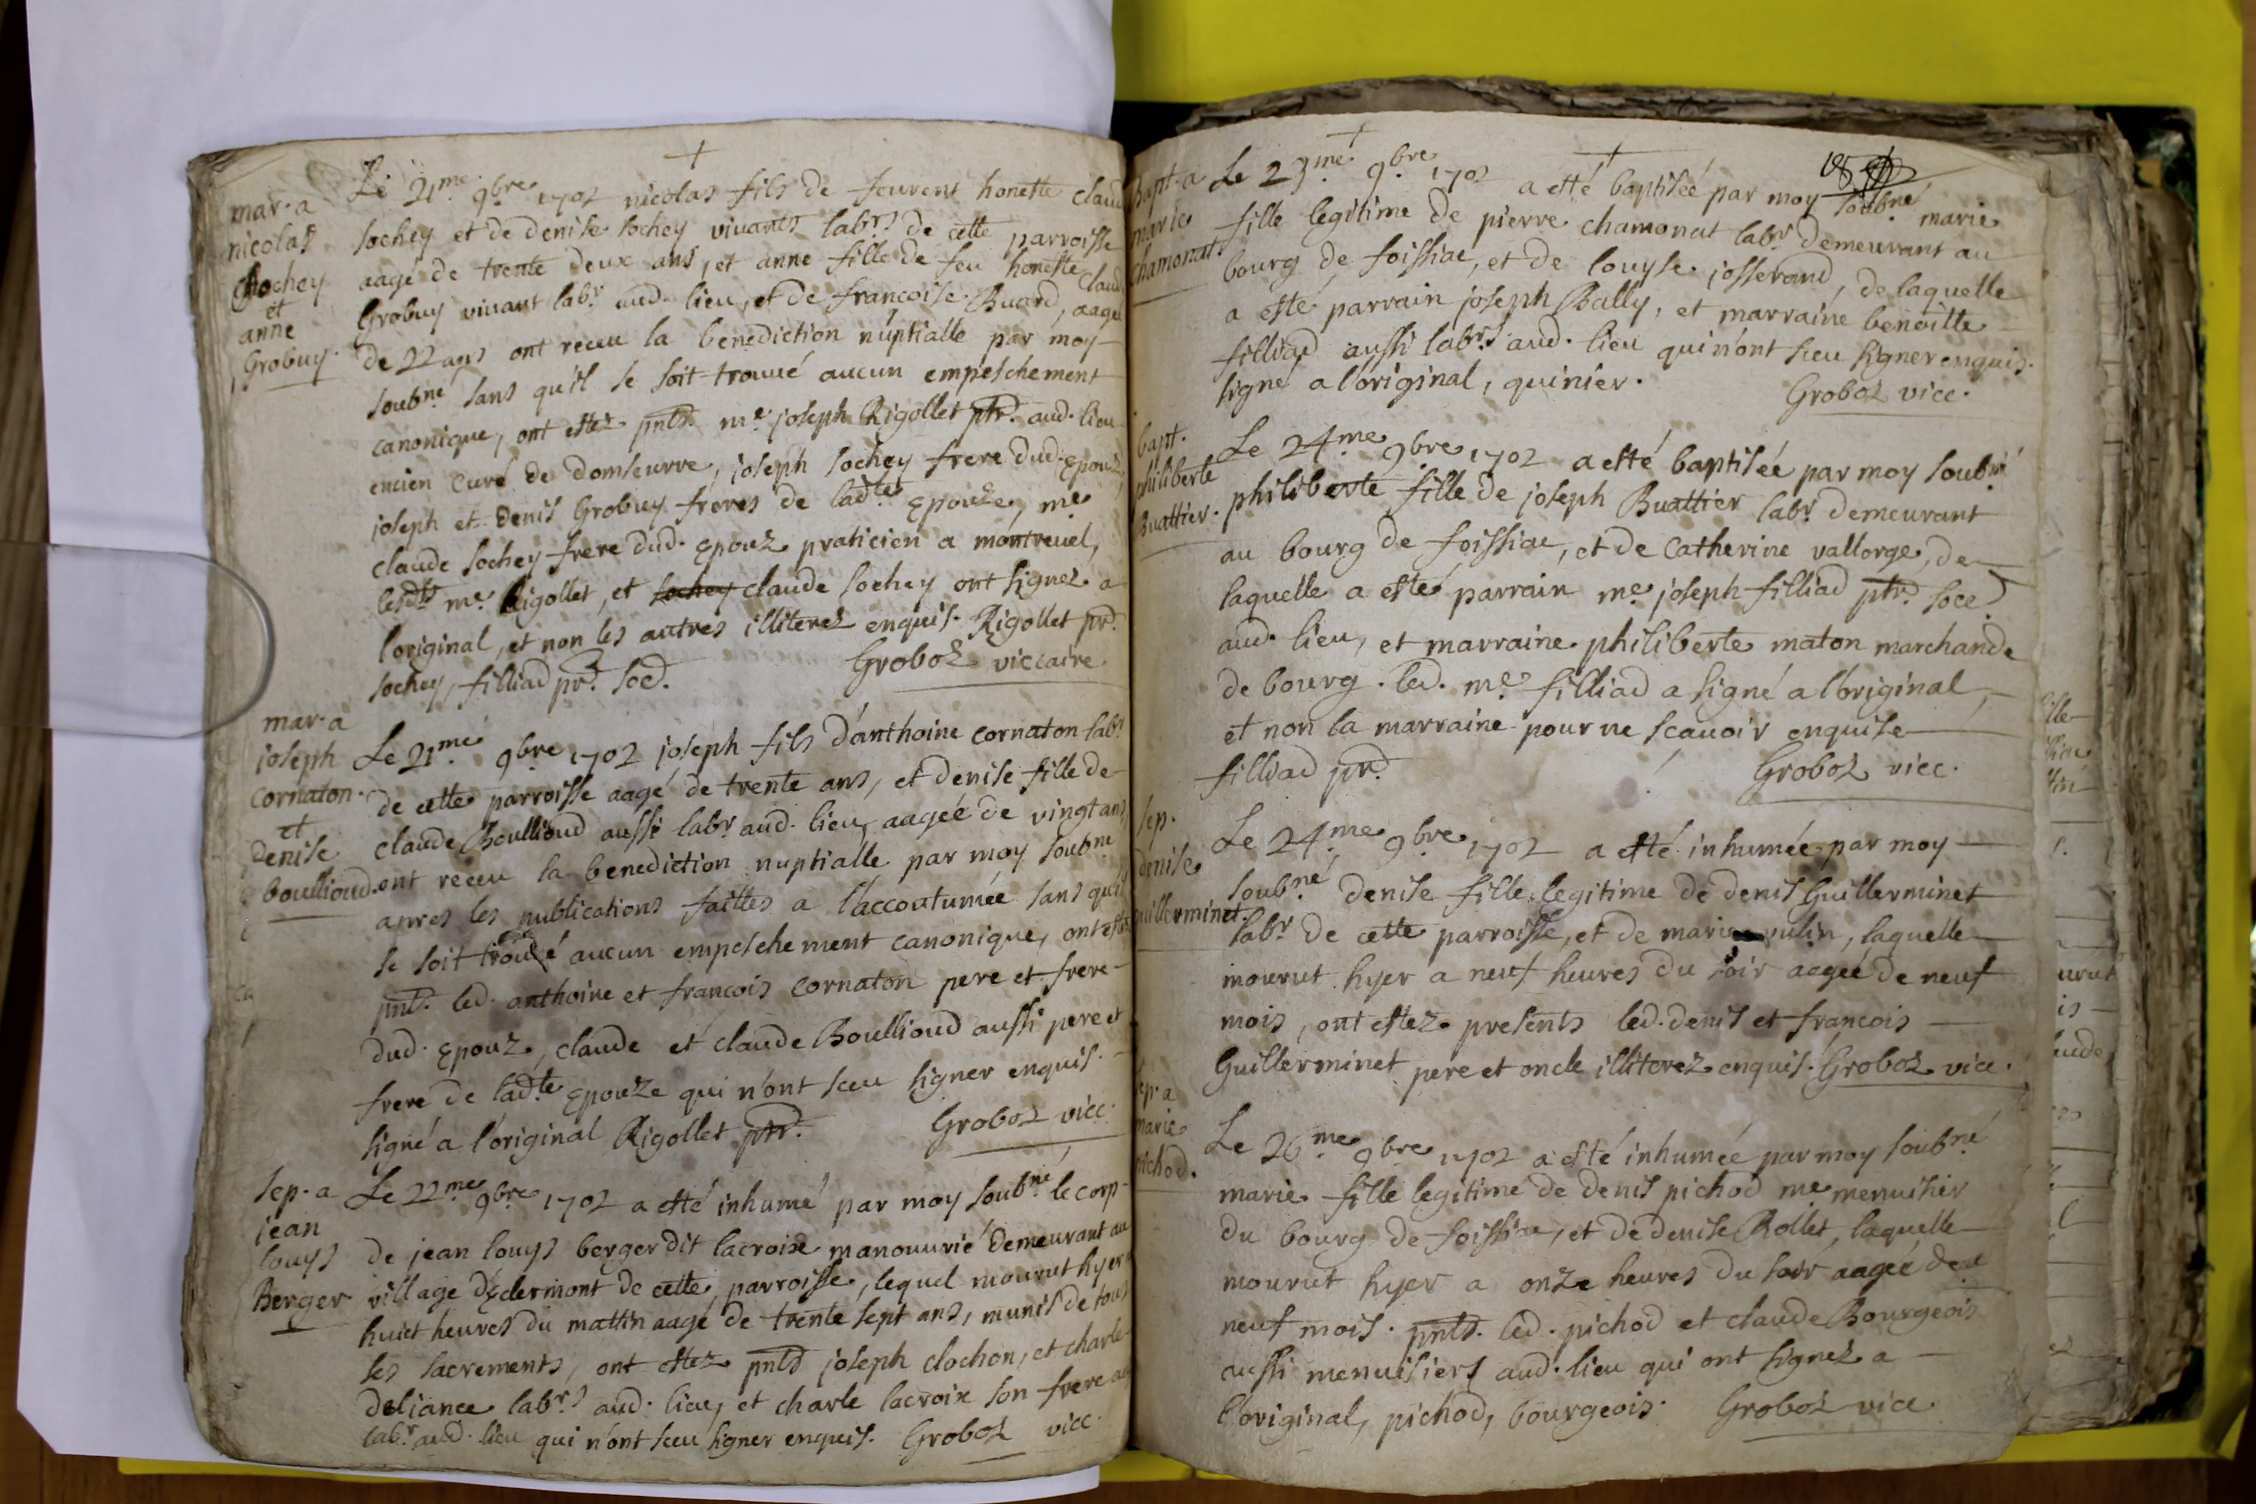 mar. a
nicolas
Sochey
et
anne
Grobuy.
Le 21me 9bre 1702 nicolas fils de feurent honette claud
sochey et de denise sochey vivants labrs de cette parroisse
aagé de trente deux ans, et anne fille de feu honette claud
Grobuy vivant labr aud. lieu, et de francoise Buard, aagé
de 22 ans ont receu la benediction nuptialle par moy
soubné sans qu'il se soit trouué aucun empeschement
canonique, ont estez pnts. me. joseph Rigollet ptr. aud. lieu
encien curé de domseurre, joseph sochey frere dud. epouz,
joseph et denis Grobuy freres de ladte epouze, me
claude sochey frere dud. epouz praticien a montrevel,
lesdts me. Rigollet, et sochey claude sochey ont signez a
l'original, et non les autres illiterez enquis. Rigollet pr.
sochey, filliad pr. soc. Groboz viccaire.
mar. a
joseph
cornaton.
et
denise
boullioud.
Le 21me 9bre 1702 joseph fils d'anthoine cornaton labr
de cette parroisse aagé de trente ans, et denise fille de
claude Boullioud aussi labr aud. lieu, aagée de vingt ans
ont receu la benediction nuptialle par moy soubné
apres les publications faittes a l'accoutumée sans qu'il
se soit trouué aucun empeschement canonique, ont estez
pnts. led. anthoine et francois cornaton pere et frere
dud. epouz, claude et claude Boullioud aussi pere et
frere de ladte epouze qui n'ont sceu signer enquis.
signé a l'original Rigollet ptr. Groboz vicc.
sep. a
jean
louys
Berger
Le 22me 9bre 1702 a esté inhumé par moy soubné le corp
de jean louys berger dit lacroix manouurié demeurant au
village d'eclermont de cette parroisse, lequel mourut hyer
huict heures du mattin aagé de trente sept ans, munis de tous
les sacrements, ont estez pnts joseph clochon, et charle
deliance labrs aud. lieu, et charle lacroix son frere
labr aud. lieu qui n'ont sceu signer enquis. Groboz vicc.
bapt. a
marie
chamonat.
Le 23me 9bre 1702 a esté baptisée par moy soubné marie
fille legitime de pierre chamonat labr demeurant au
bourg de foissiac, et de louyse josserand, de laquelle
a esté parrain joseph Bally, et marraine benoitte
filliad aussi labrs aud. lieu qui n'ont sceu signer enquis.
signé a l'original, quinier. Groboz vicc.
bapt.
philiberte
Buattier.
Le 24me 9bre 1702 a esté baptisée par moy soubné
philiberte fille de joseph Buattier labr demeurant
au bourg de foissiac, et de catherine vallorge, de
laquelle a esté parrain me joseph filliad ptr. soc
aud. lieu, et marraine philiberte maton marchande
de bourg. led. me. filliad a signé a l'original,
et non la marraine pour ne scauoir enquise
filliad pr. Groboz vicc.
sep.
denise
guillerminet.
Le 24me 9bre 1702 a esté inhumée par moy
soubné denise fille legitime de denis Guillerminet
labr de cette parroisse, et de marie pulin, laquelle
mourut hyer a neuf heures du soir aagée de neuf
mois, ont estez presents led. denis et francois
Guillerminet pere et oncle illiterez enquis. Groboz vicc.
sep. a
marie
pichod.
Le 26me 9bre 1702 a esté inhumée par moy soubné
marie fille legitime de denis pichod me menuisier
du bourg de foissiac, et de denise Rollet, laquelle
mourut hyer a onze heures du soir aagée de
neuf mois. pnts. led. pichod et claude Bourgeois
aussi menuisiers aud. lieu qui ont signez a
l'original, pichod, bourgeois. Groboz vicc